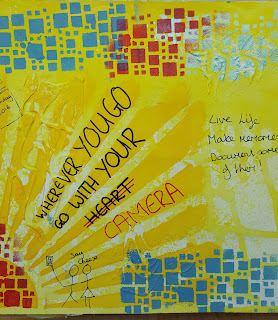 WHEREVER YOU GO
GO WITH YOUR
HEART
CAMERA
Live Life
Make memories
Document some
of them!
Say
Cheese